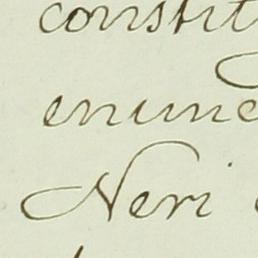 constit
enume
Neri